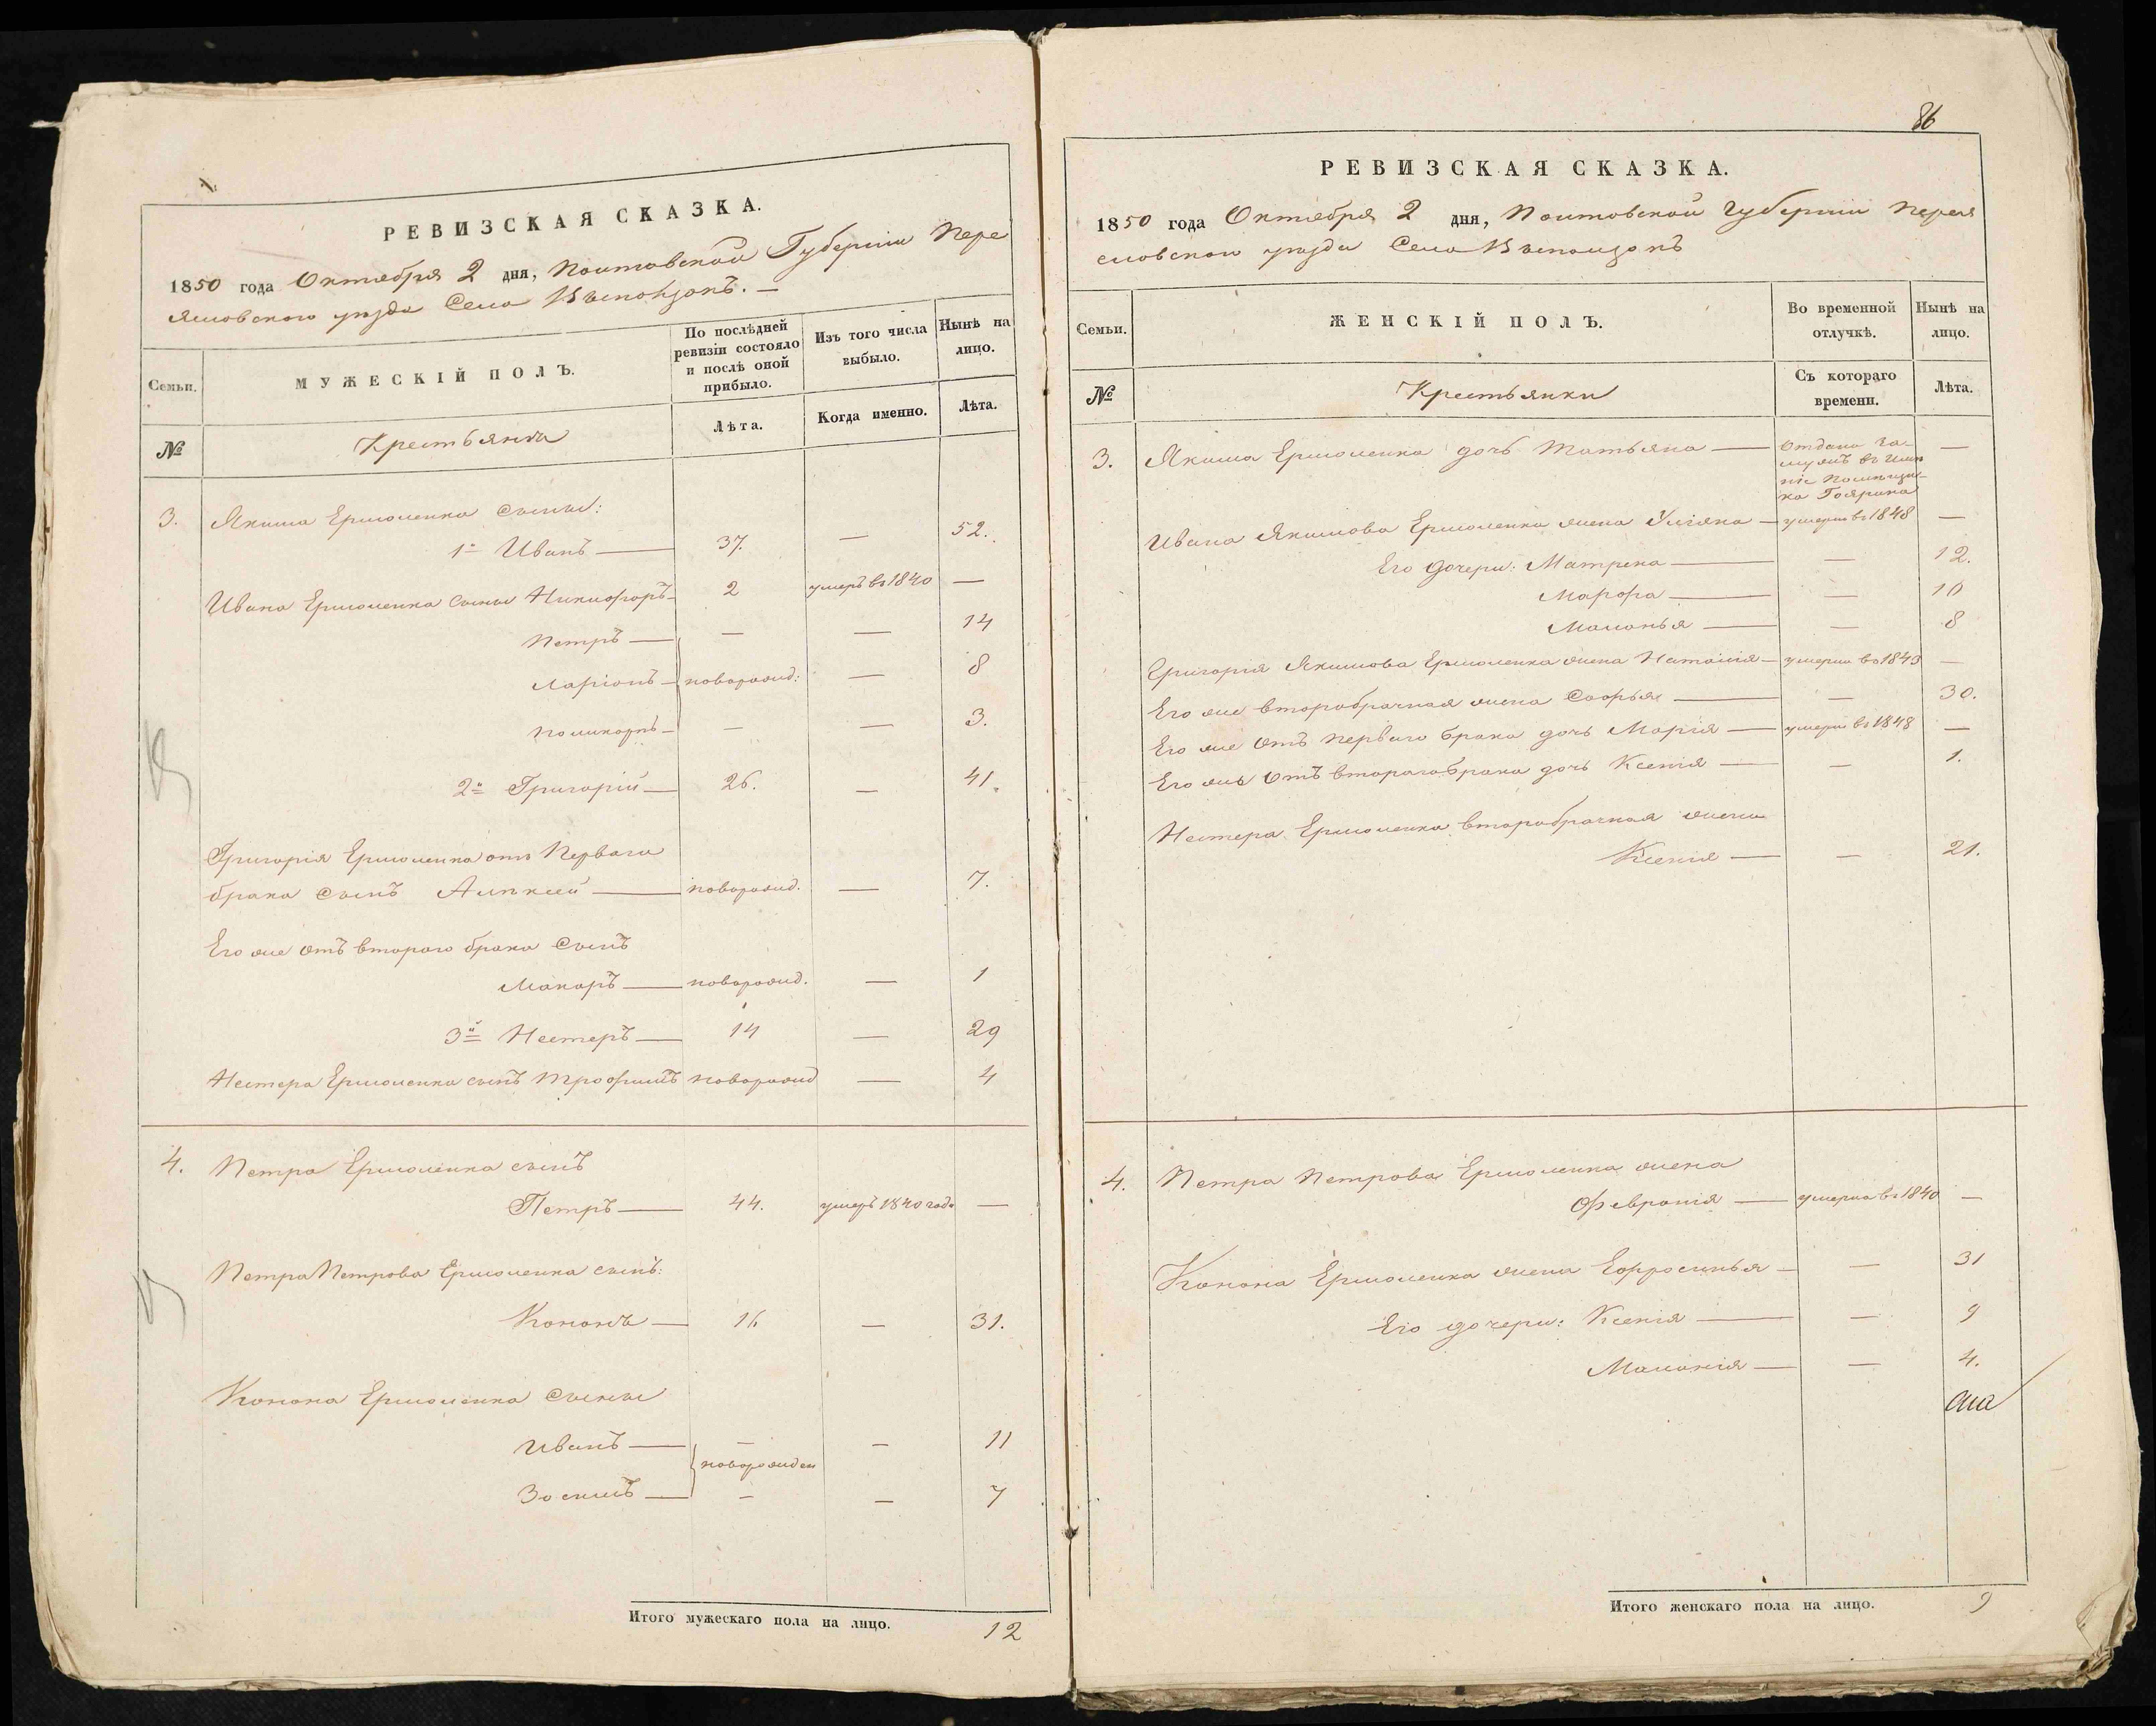 РЕВИЗСКАЯ СКАЗКА.
1850 года Октября 2 дня, Полтавской Губерніи Пере
яславского уезда Села
Семьи.
МУЖЕСКІЙ ПОЛЪ.
По послѣдней ревизіи состояло и послѣ оной прибыло.
Изъ того числа выбыло.
Нынѣ на лицо.
№
Крестьяне
Лѣта.
Когда именно.
Лѣта.
3. Якима Ермоленка Сыны:
1й Иванъ — 37. — 52.
Ивана Ермоленка сыны Никифоръ 2 умеръ въ 1840 —
Петръ — — — 14
Ларіонъ — новорожд: — 8
Поликарпъ — — — 3.
2й Григорій — 26. — 41.
Григорія Ермоленка отъ Перваго
брака Сынъ Алексей — новорожд. — 7.
Его же Отъ втораго брака Сынъ
Макаръ — новорожд. — 1
3й Нестеръ — 14 — 29
Нестера Ермоленка сынъ Трофимъ новорожд — 4
4. Петра Ермоленка сынъ
Петръ — 44. умеръ 1840 года —
Петра Петрова Ермоленка сынъ:
Кононъ — 16 — 31.
Конона Ермоленка Сыны
Иванъ — — — 11
новорожден
Зосимъ — — — 7
Итого мужескаго пола на лицо. 12
86
РЕВИЗСКАЯ СКАЗКА.
1850 года Октября 2 дня, Полтавской Губерніи Перея
славскаго уезда Села
Семьи.
ЖЕНСКІЙ ПОЛЪ.
Во временной отлучкѣ.
Нынѣ на лицо.
№
Крестьянки
Съ котораго времени.
Лѣта.
3. Якима Ермоленка дочь Татьяна — Отдана за —
мужъ въ Име
ніе Помещи-
ка
Ивана Якимова Ермоленка жена Уліяна — умерла въ 1848 —
Его Дочери: Матрена — — 12.
Марфа — — 10
Маланья — — 8
Григорія Якимова Ермоленка жена Наталія — умерла въ 1843 —
Его же второбрачная жена Софья — — 30.
Его же Отъ перваго брака дочь Марія — умерла въ 1848 —
Его же Отъ втораго брака дочь Ксенія — — 1.
Нестера Ермоленка второбрачная жена
Ксенія — — 21.
4. Петра Петрова Ермоленка жена
Февронія — умерла въ 1840 —
Конона Ермоленка жена Ефросинья — — 31
Его дочери: Ксенія — — 9
Маланія — — 4.
Итого женскаго пола на лицо. 9